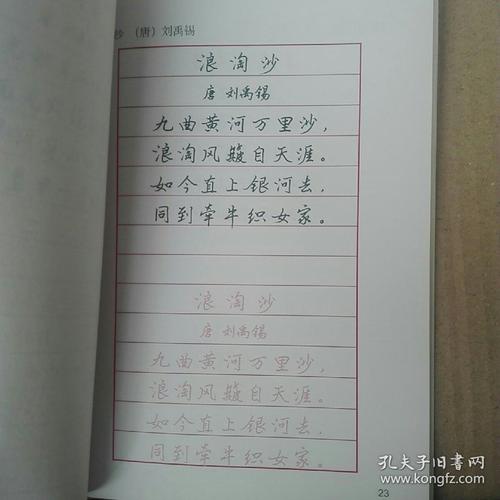 沙 （唐）刘禹锡
浪淘沙
唐 刘禹锡
九曲黄河万里沙，
浪淘风簸自天涯。
如今直上银河去，
同到牵牛织女家。
浪淘沙
唐 刘禹锡
九曲黄河万里沙，
浪淘风簸自天涯。
如今直上银河去，
同到牵牛织女家。
23
孔夫子旧书网